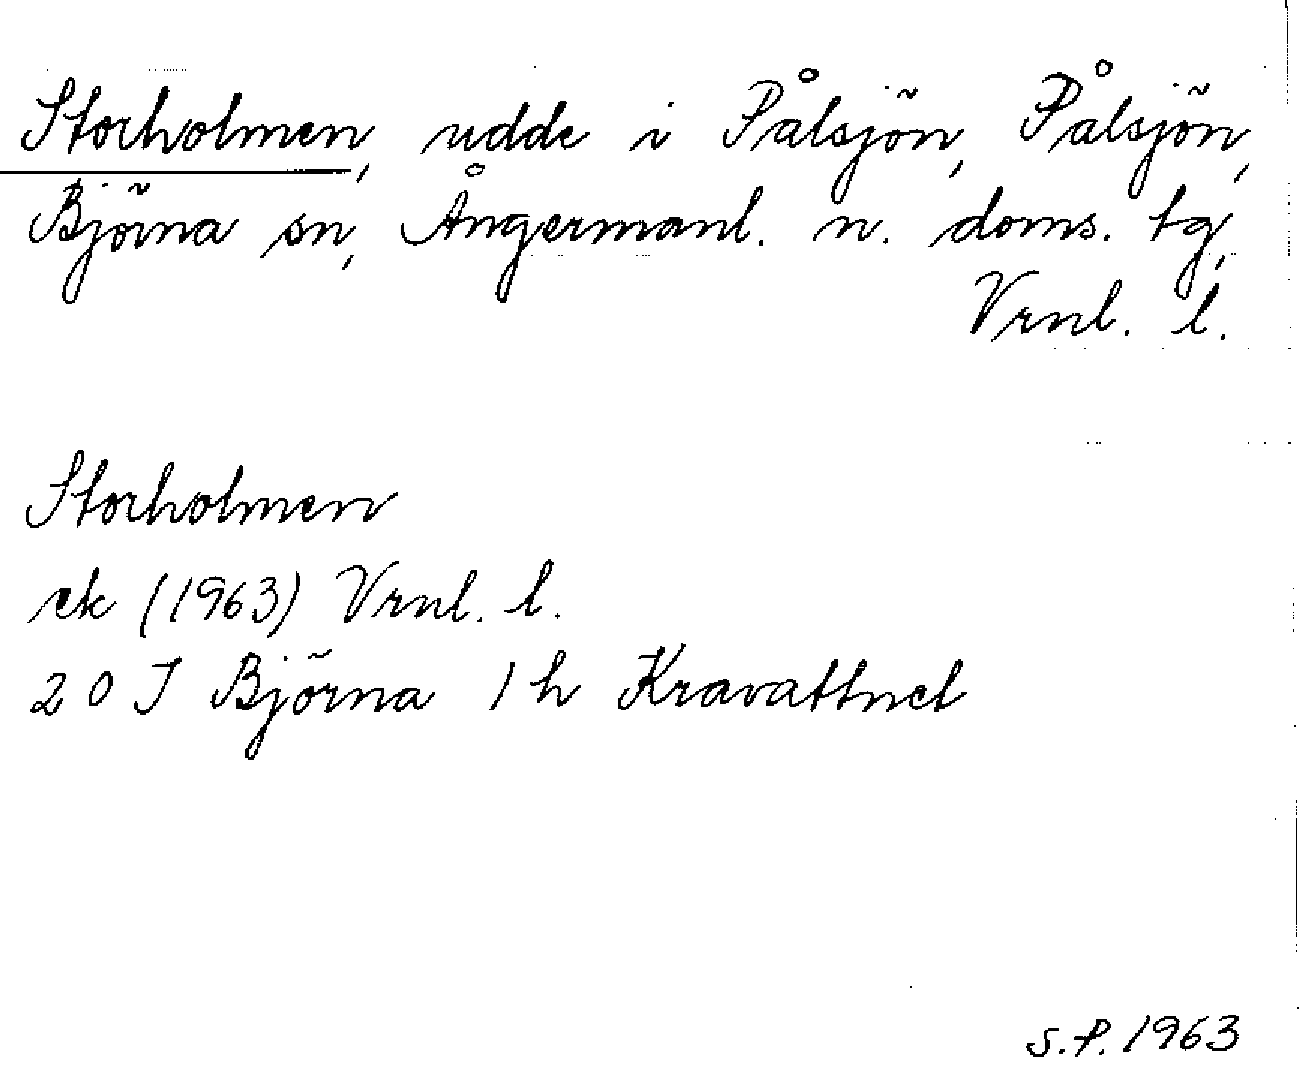 Storholmen, udde i Pålsjön, Pålsjön,
Björna sn, Ångermanl. n. doms. tg,
Vrnl. l.
Storholmen
ek (1963) Vrnl. l.
20 J Björna 1h Kravattnet
S.P. 1963